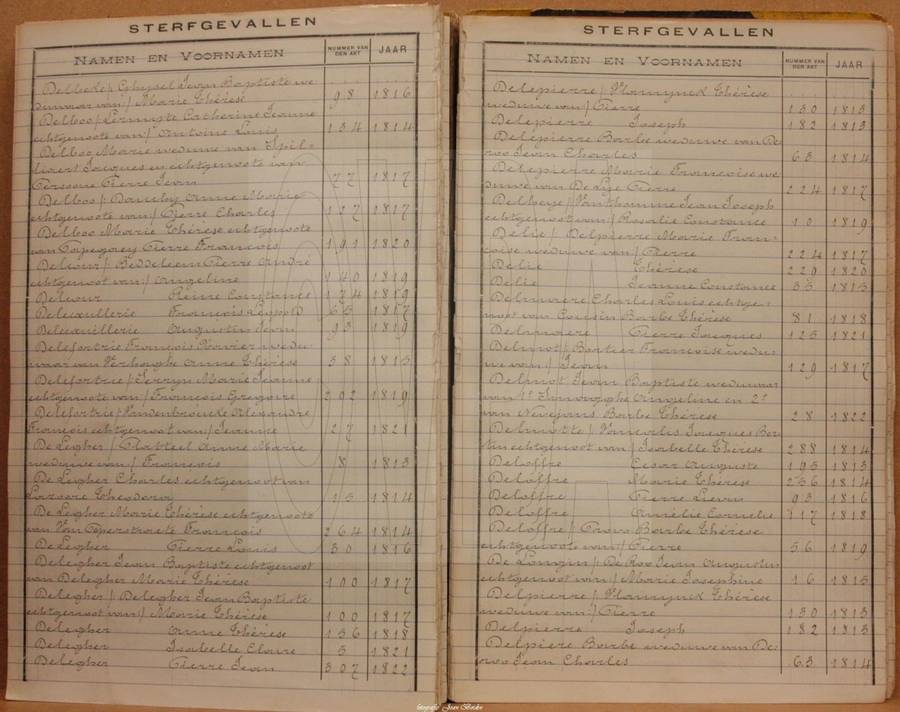 STERFGEVALLEN
NAMEN EN VOORNAMEN
NUMMER VAN DEN AKT
JAAR
Delbeke / Ghysel Jean Baptiste we
duwaar van / Marie Thérèse 98 1816
Delboo / Lermyte Catherine Jeanne
echtgenoote van / Antoine Louis 134 1814
Delboo Marie weduwe van Spil-
liaert Jacques en echtgenoote van
Persoone Pierre Jean 77 1817
Delboo / Dauchy Anne Marie
echtgenoote van / Pierre Charles 127 1817
Delboo Marie Thérèse echtgenoote
van Papegaey Pierre François 191 1820
Delcour / Beddeleem Pierre André
echtgenoot van / Angeline 140 1819
Delcour Reine Constance 174 1819
Delecuillerie François Léopold 63 1817
Delecuillerie Augustin Jean 93 1819
Delefortrie François Xavier wedu-
naar van Verhaeghe Anne Thérèse 38 1813
Delefortrie / Terryn Marie Jeanne
echtgenoote van / François Grégoire 202 1819
Delefortrie / Vandenbroucke Alexandre
François echtgenoot van / Jeanne 27 1821
De Legher / Platteel Anne Marie
weduwe van / François 8 1813
De Legher Charles echtgenoot van
Lazoore Theodora 15 1814
De Legher Marie Thérèse echtgenoote
van Van Peperstraete François 264 1814
De Legher Pierre Louis 30 1816
Delegher Jean Baptiste echtgenoot
van Delegher Marie Thérèse 100 1817
Delegher / Delegher Jean Baptiste
echtgenoot van / Marie Thérèse 100 1817
Delegher Anne Thérèse 136 1818
Delegher Isabelle Claire 3 1821
Delegher Pierre Jean 307 1822
STERFGEVALLEN
NAMEN EN VOORNAMEN
NUMMER VAN DEN AKT
JAAR
Delepierre / Vlamynck Thérèse
weduwe van / Pierre 130 1813
Delepierre Joseph 182 1813
Delepierre Barbe weduwe van De
roo Jean Charles 63 1814
Delepierre Marie Françoise we
duwe van De Lye Pierre 224 1817
Delheye / Vanthomme Jean Joseph
echtgenoot van / Rosalie Constance 10 1819
Delie / Delpierre Marie Fran-
çoise weduwe van / Pierre 224 1817
Delie Thérèse 229 1820
Delie Jeanne Constance 33 1813
Delmaere Charles Louis echtge-
noot van Cousin Barbe Thérèse 81 1818
Delmaere Pierre Jacques 123 1821
Delmot / Bartier Françoise wedu-
we van / Jean 129 1817
Delmot Jean Baptiste weduwaar
van 1° Angeline en 2°
van Nevejans Barbe Thérèse 28 1822
Delmotte / Jacques Ber
tin echtgenoot van / Isabelle Thérèse 288 1814
Deloffre César Auguste 193 1813
Deloffre Marie Thérèse 236 1814
Deloffre Pierre Lievin 93 1816
Deloffre Amélie Cornelie 117 1818
Deloffre / Barbe Thérèse
echtgenoote van / Pierre 56 1819
De Longin / De Roo Jean Augustin
echtgenoot van / Marie Josephine 16 1813
Delpierre / Vlamynck Thérèse
weduwe van / Pierre 130 1813
Delpierre Joseph 182 1813
Delpiere Barbe weduwe van De
roo Jean Charles 63 1814